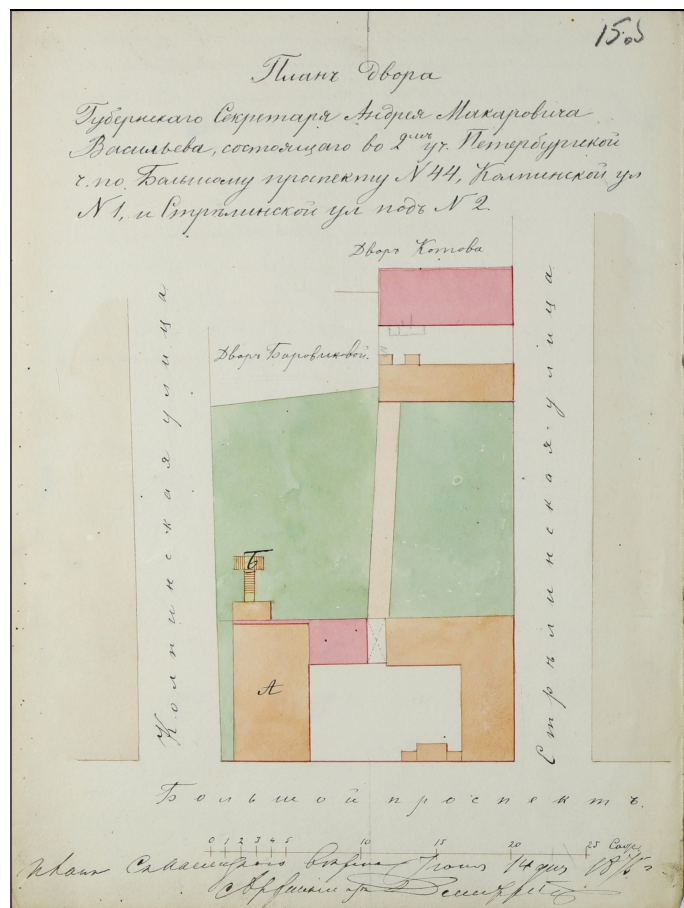 15
Планъ двора
Губернскаго Секретаря Андрея Макаровича
Васильева, состоящаго во 2мъ уч. Петербургской
ч. по Большому проспекту N 44, Колпинской ул
N 1, и Стрѣлинской ул подъ N 2.
Дворъ Котова
Дворъ Боровиковой.
Колпинская улица
Стрѣлинская улица
Б
А
Большой проспектъ.
0 1 2 3 4 5 10 15 20 25 Саж.
14 дня